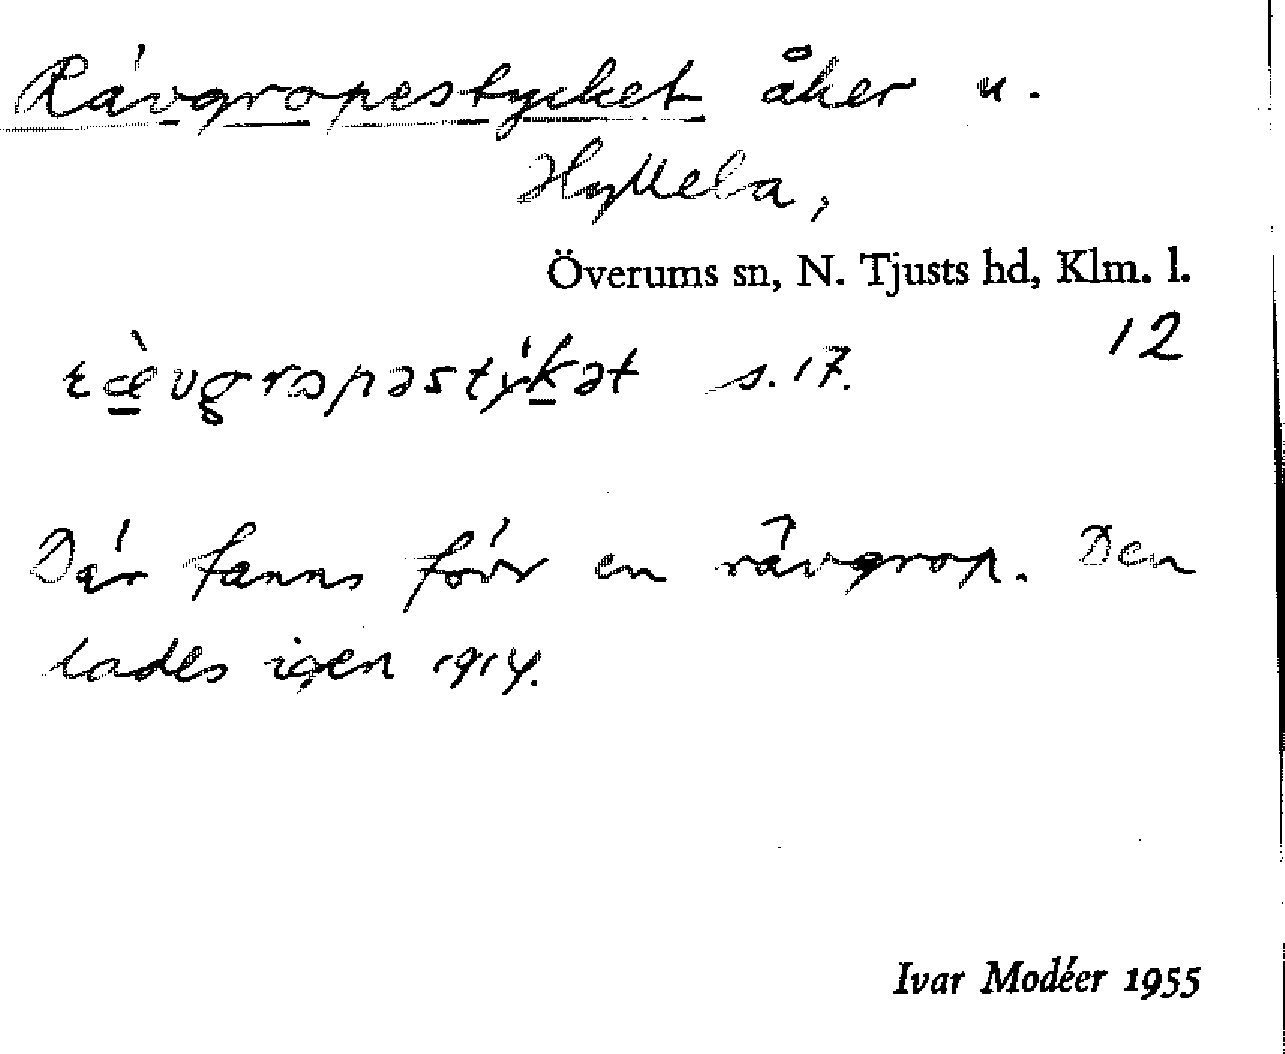 Rävgropestycket åker u.
Hyllela,
Överums sn, N. Tjusts hd, Klm. l.
12
ræ̀vgropəstýkət s. 17.
Där fanns förr en rävgrop. Den
lades igen 1914.
Ivar Modéer 1955